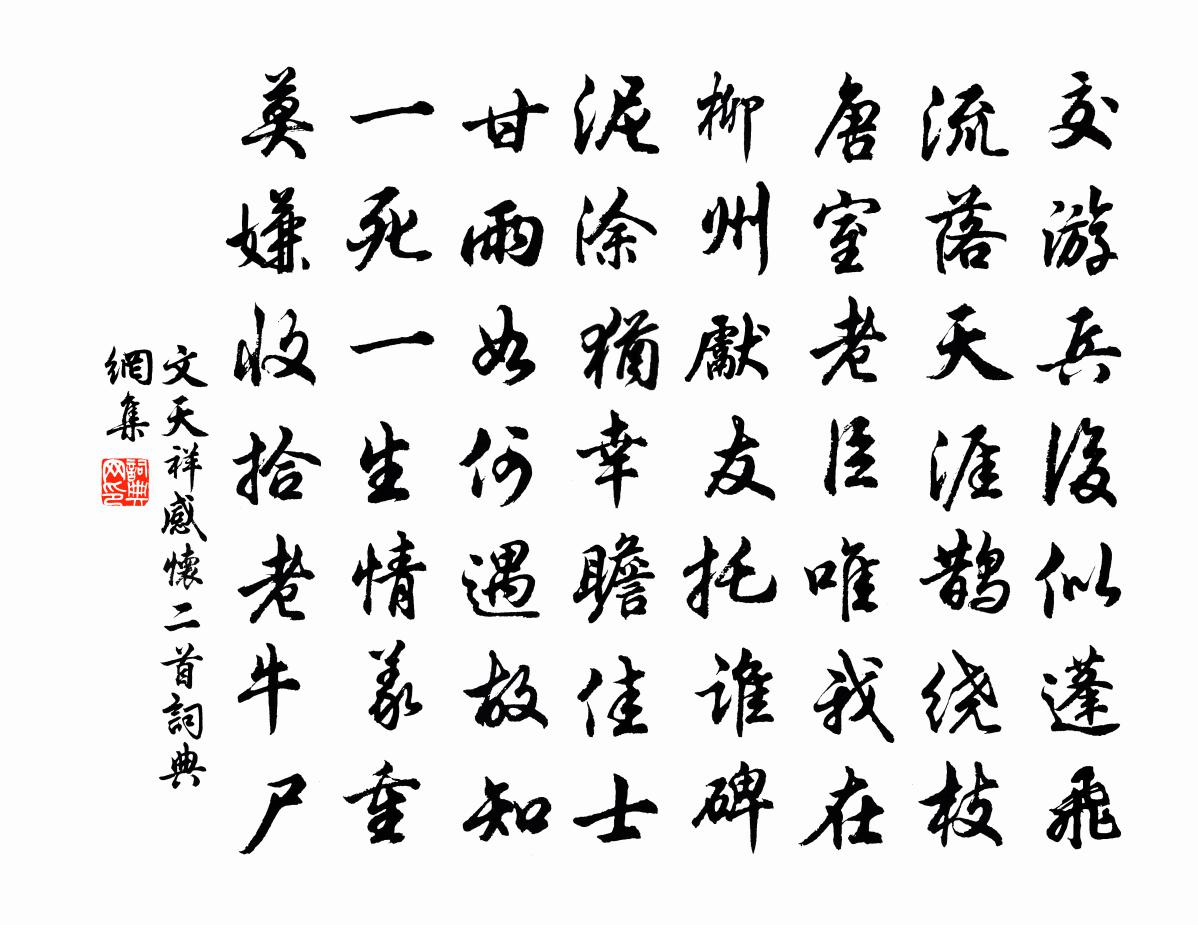 交游兵後似蓬飛
流落天涯鹊绕枝
唐室老臣唯我在
柳州獻友托谁碑
泥涂猶幸瞻佳士
甘雨如何遇故知
一死一生情義重
莫嫌收拾老牛尸
文天祥感懷二首詞典
網集
詞典网印